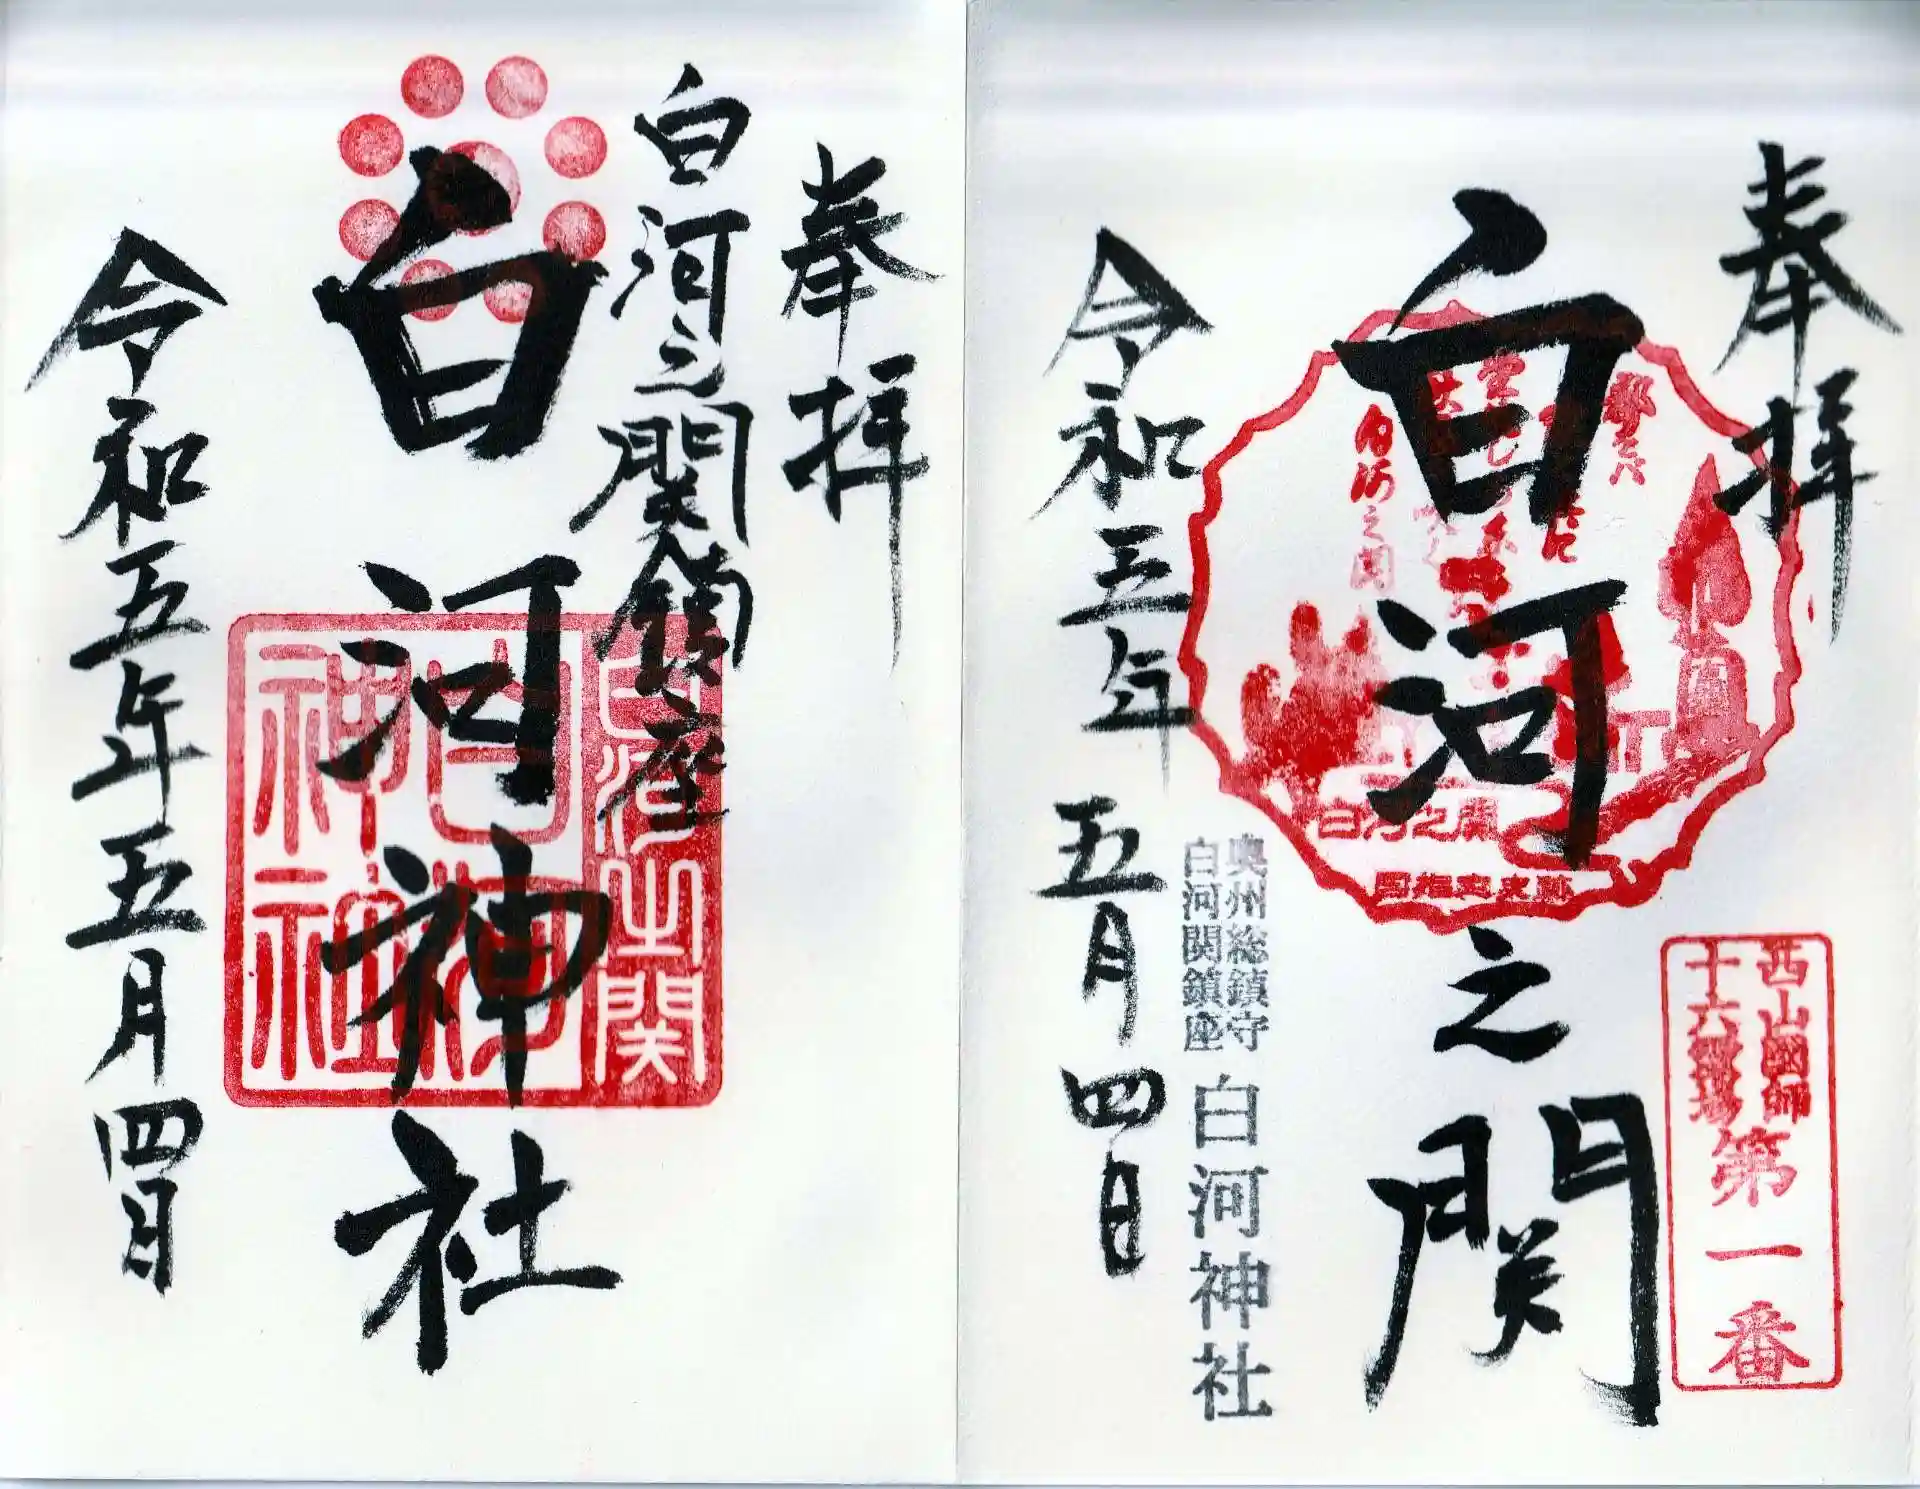 奉拝
西山國師
十六霊場
第一番
白河之関
白河之関
白河之関
国指定史跡
奥州総鎮守
白河関鎮座
白河神社
令和五年五月四日
奉拝
白河之関鎮座
白河之関
白河神社
白河神社
令和五年五月四日